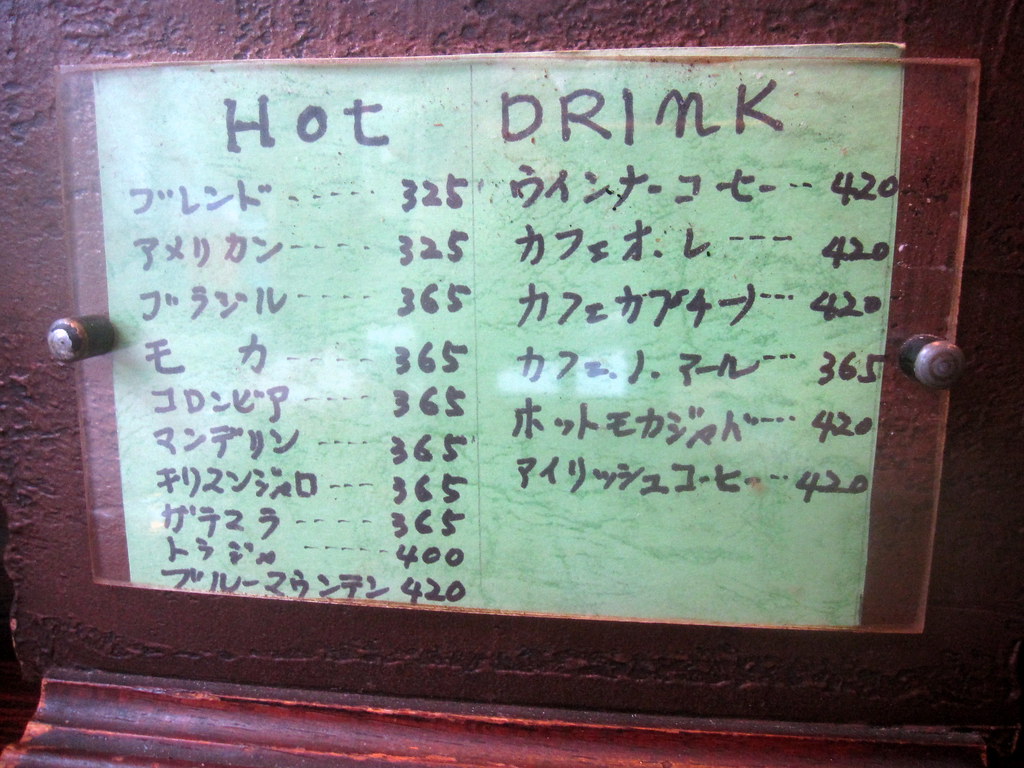 Hot DRINK
ブレンド ----- 325
アメリカン ----- 325
ブラジル ----- 365
モ カ ----- 365
コロンビア ----- 365
マンデリン 365
キリマンジャロ --- 365
ガテマラ ----- 365
トラジャ ------ 400
ブルーマウンテン 420
ウインナーコーヒー... 420
カフェオ.レ --- 420
カフェカプチーノ... 420
カフェ.ノ.アール... 365
ホットモカジャバ... 420
アイリッシュコーヒー... 420